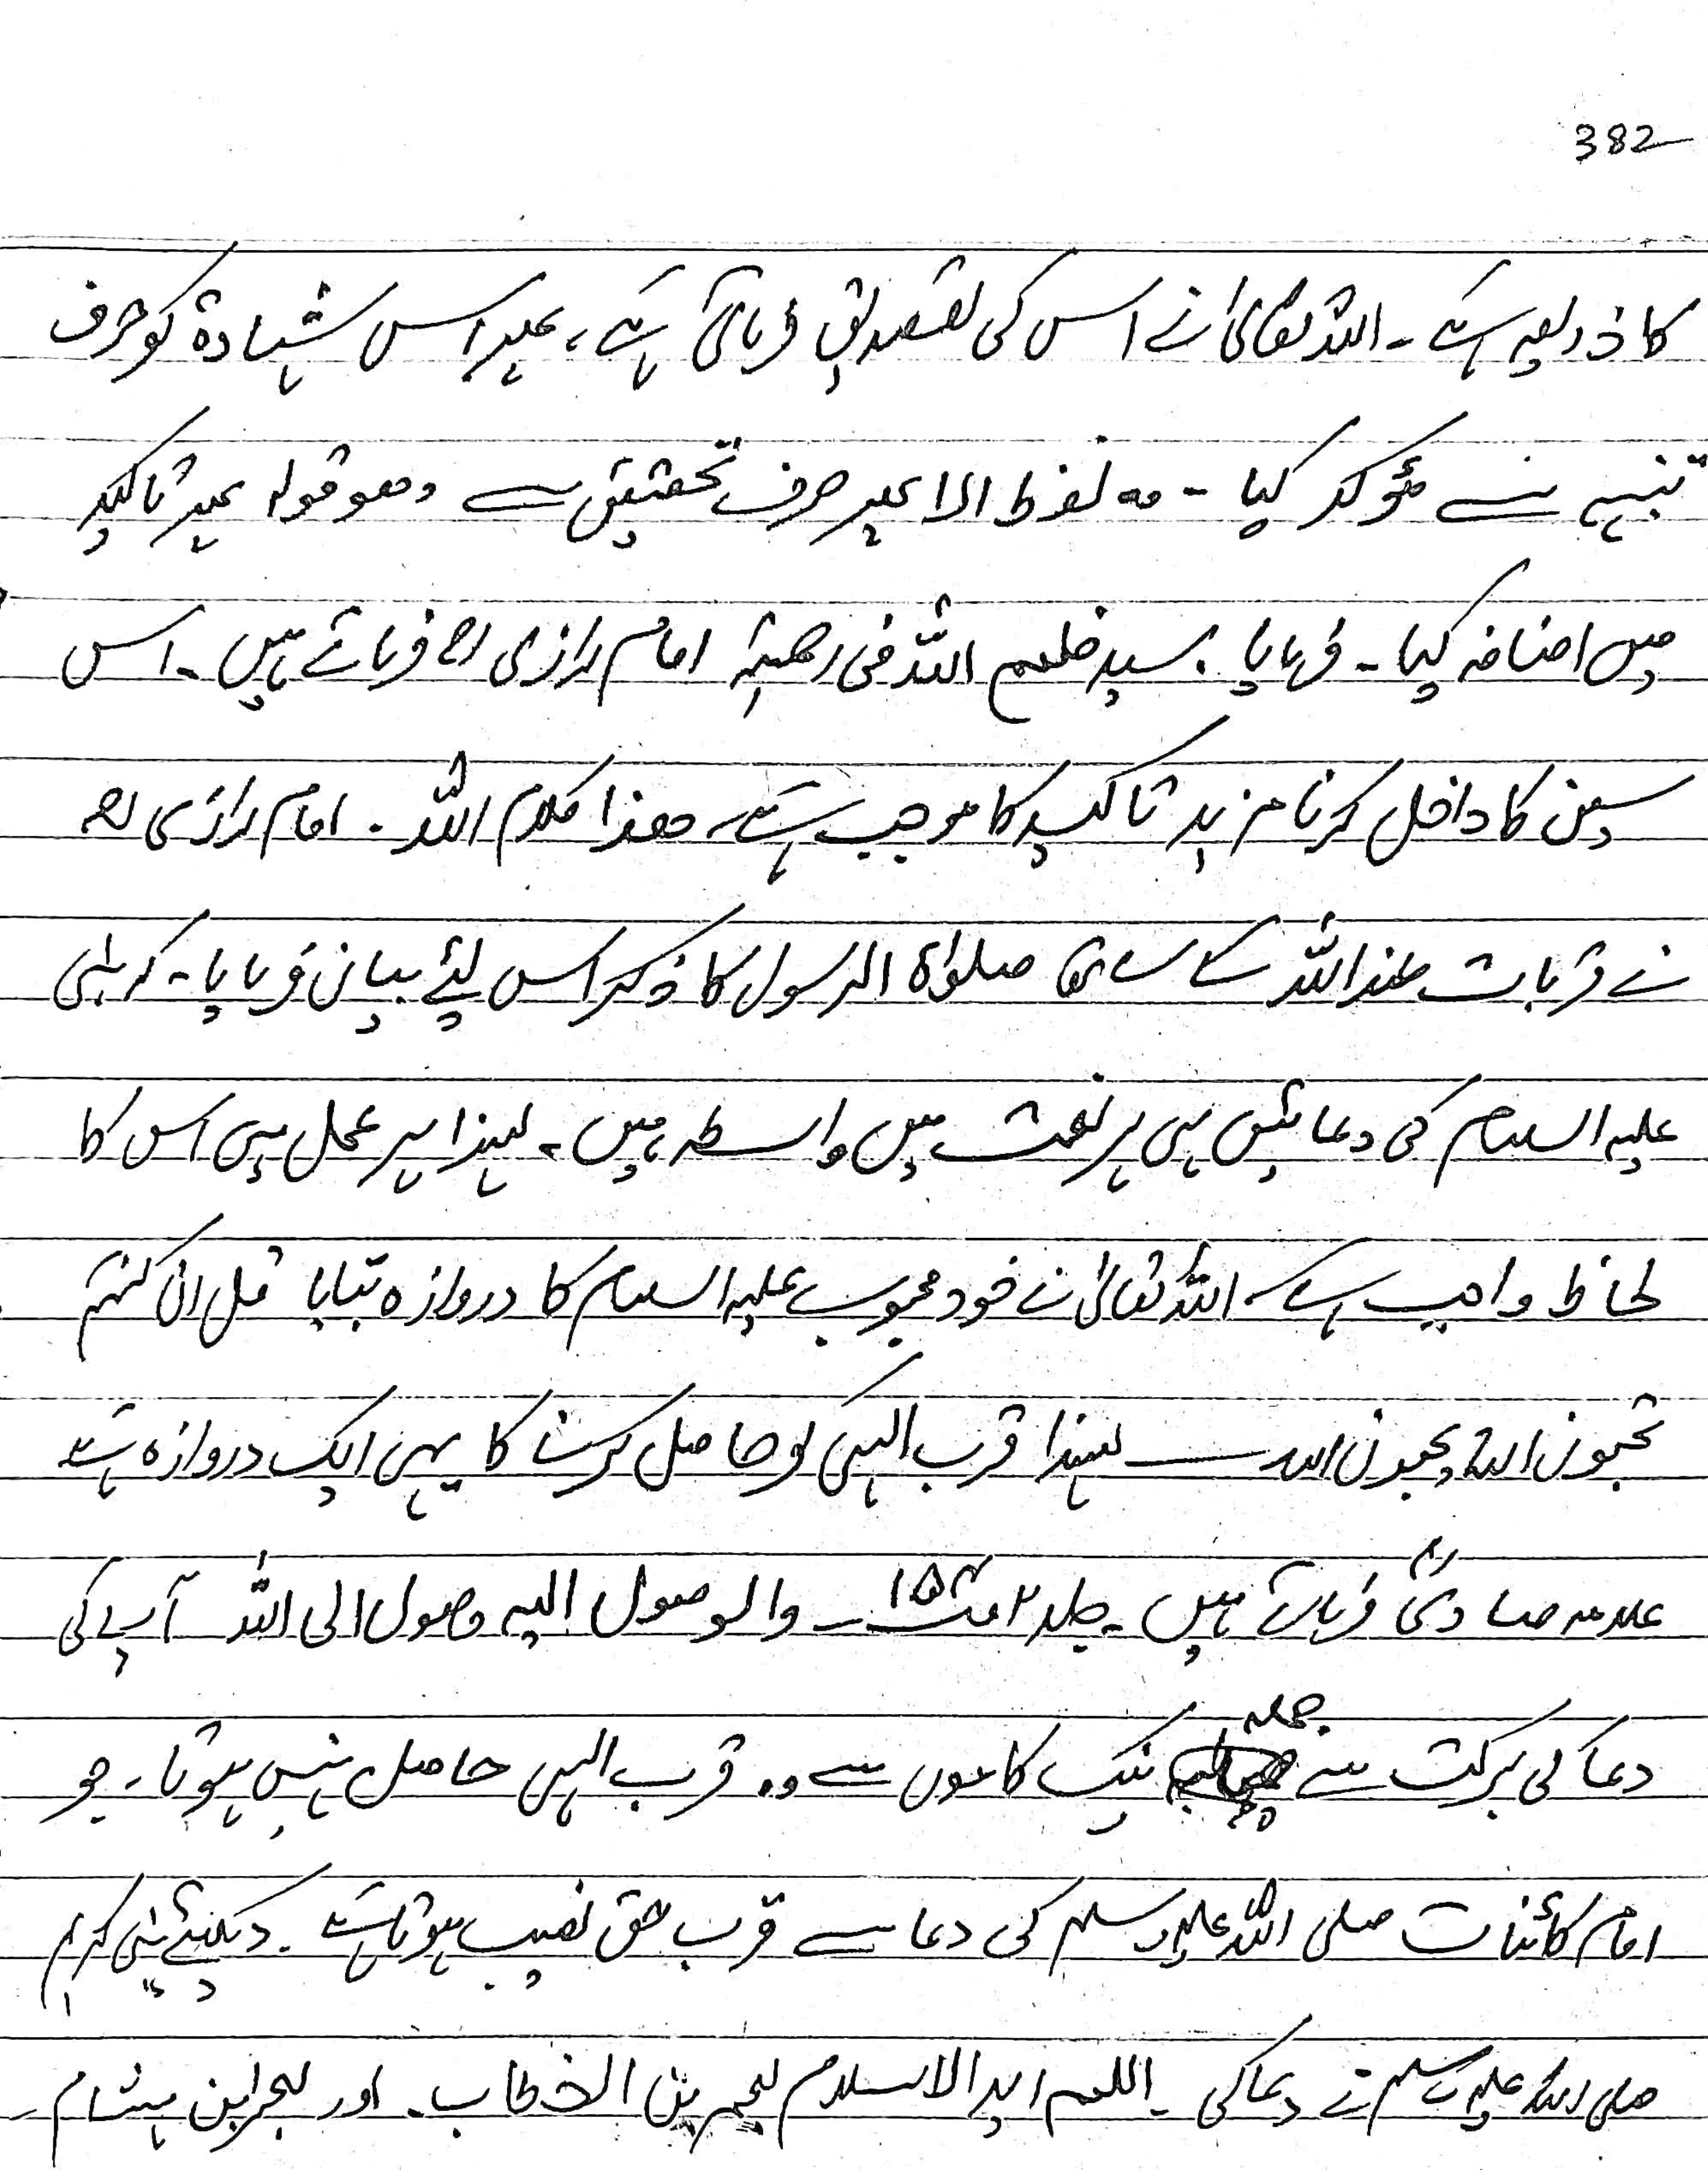 382
کا ذریعہ ہے ۔ اللہ تعالیٰ نے اس کی تصدیق فرمائی ہے، پھر اس شہادۃ کو حرف
تنبیہ سے مؤکد کیا ۔ وہ لفظ الا پھر حرف تحقیق سے وھو قولہ پھر تاکید
میں اضافہ کیا ۔ فرمایا . سیدخلھم اللہ فی رحمتہ امام رازی رح فرماتے ہیں ۔ اس
سین کا داخل کرنا مزید تاکید کا موجب ہے، ھذا کلام اللہ . امام رازی رح
نے قربات عند اللہ کے ساتھ صلوٰۃ الرسول کا ذکر اس لئے بیان فرمایا ۔ کہ نبی
علیہ السلام کی دعائیں ہی ہر نعمت میں واسطہ ہیں ۔ لہٰذا ہر عمل میں اس کا
لحاظ واجب ہے ۔ اللہ تعالیٰ نے خود محبوب علیہ السلام کا دروازہ بتایا قل ان کنتم
تحبون اللہ لہٰذا قرب الٰہی کو حاصل کرنے کا یہی ایک دروازہ ہے
علامہ صاوی رح فرماتے ہیں ۔ جلد ۲ والوصول الیہ وصول الی اللہ آپ کی
دعا کی برکت سے جملہ نیک کاموں سے وہ قرب الٰہی حاصل نہیں ہوتا ۔ جو
امام کائنات صلی اللہ علیہ وسلم کی دعا سے قرب حق نصیب ہوتا ہے ۔ دیکھئے نبی کریم
صلی اللہ علیہ وسلم نے دعا کی ۔ اللھم اید الاسلام بعمر بن الخطاب ۔ اور ابن ہشام ۔